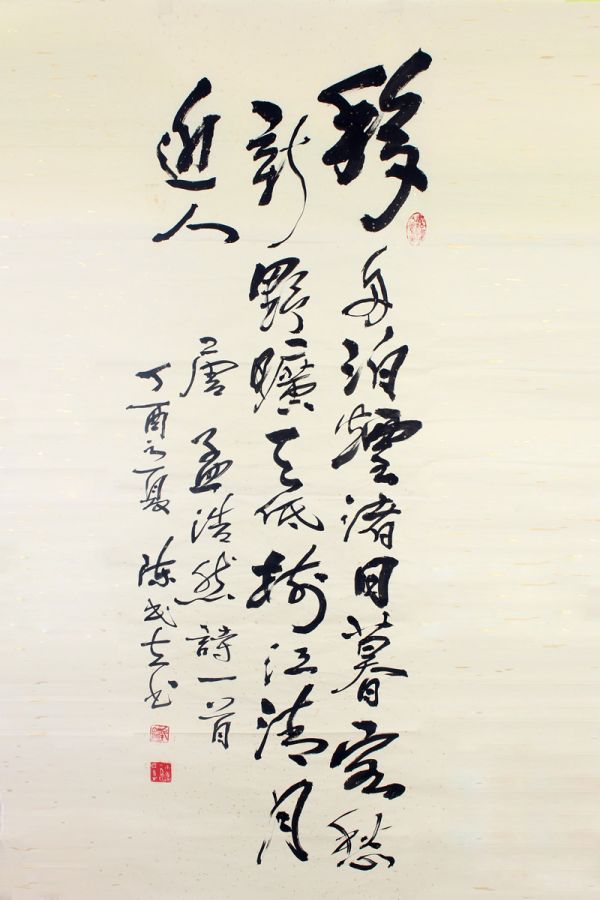 移舟泊煙渚日暮客愁
新野曠天低樹江清月
近人
唐孟浩然詩一首
丁酉之夏陳武志书